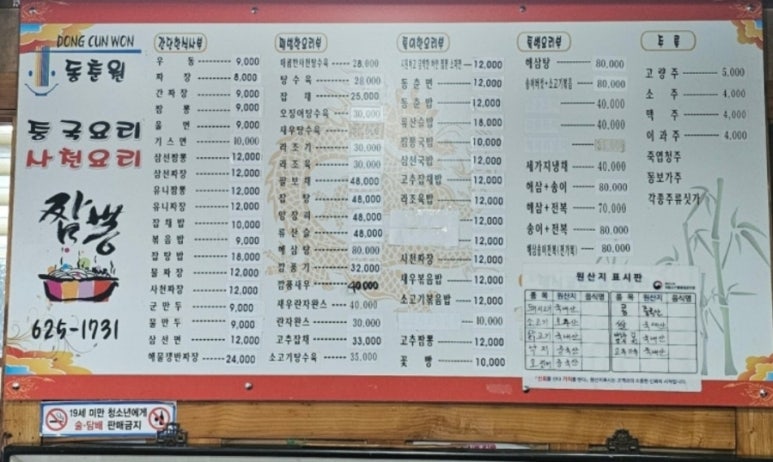 DONG CUN WON
동춘원
중국요리
사천요리
짬뽕
625-1731
간단한식사부
우동 9,000
짜장 8,000
간짜장 9,000
짬뽕 9,000
울면 9,000
기스면 10,000
삼선짬뽕 12,000
삼선짜장 12,000
유니짬뽕 12,000
유니짜장 12,000
잡채밥 10,000
볶음밥 9,000
잡탕밥 18,000
물짜장 12,000
사천짜장 12,000
군만두 9,000
물만두 9,000
삼선면 12,000
해물쟁반짜장 24,000
탕수육 28,000
잡채 25,000
오징어탕수육 30,000
새우탕수육
라조기 30,000
라조육 30,000
팔보채 48,000
잡탕 48,000
양장피 48,000
류산슬 48,000
해삼탕 80,000
깐풍기 32,000
깐풍새우 40,000
새우란자완스 40,000
란자완스 30,000
고추잡채 33,000
소고기탕수육 35,000
12,000
동춘면 12,000
동춘밥 12,000
류산슬밥 18,000
짬뽕국밥 12,000
삼선국밥 12,000
고추잡채밥 12,000
라조육밥 12,000
12,000
12,000
사천짜장 12,000
새우볶음밥 12,000
소고기볶음밥 12,000
10,000
고추짬뽕 12,000
꽃빵 10,000
특색요리부
해삼탕 80,000
송이버섯+소고기볶음 80,000
40,000
40,000
세가지냉채 40,000
해삼+송이 80,000
해삼+전복 70,000
송이+전복 80,000
80,000
주류
고량주 5,000
소주 4,000
맥주 4,000
이과주 4,000
죽엽청주
동보가주
각종주류있가
원산지 표시판
품목 원산지 음식명 품목 원산지 음식명
돼지고기 국내산
소고기 호주산
쌀 국내산
닭고기 국내산
낙지 중국산
19세 미만 청소년에게
술·담배 판매금지